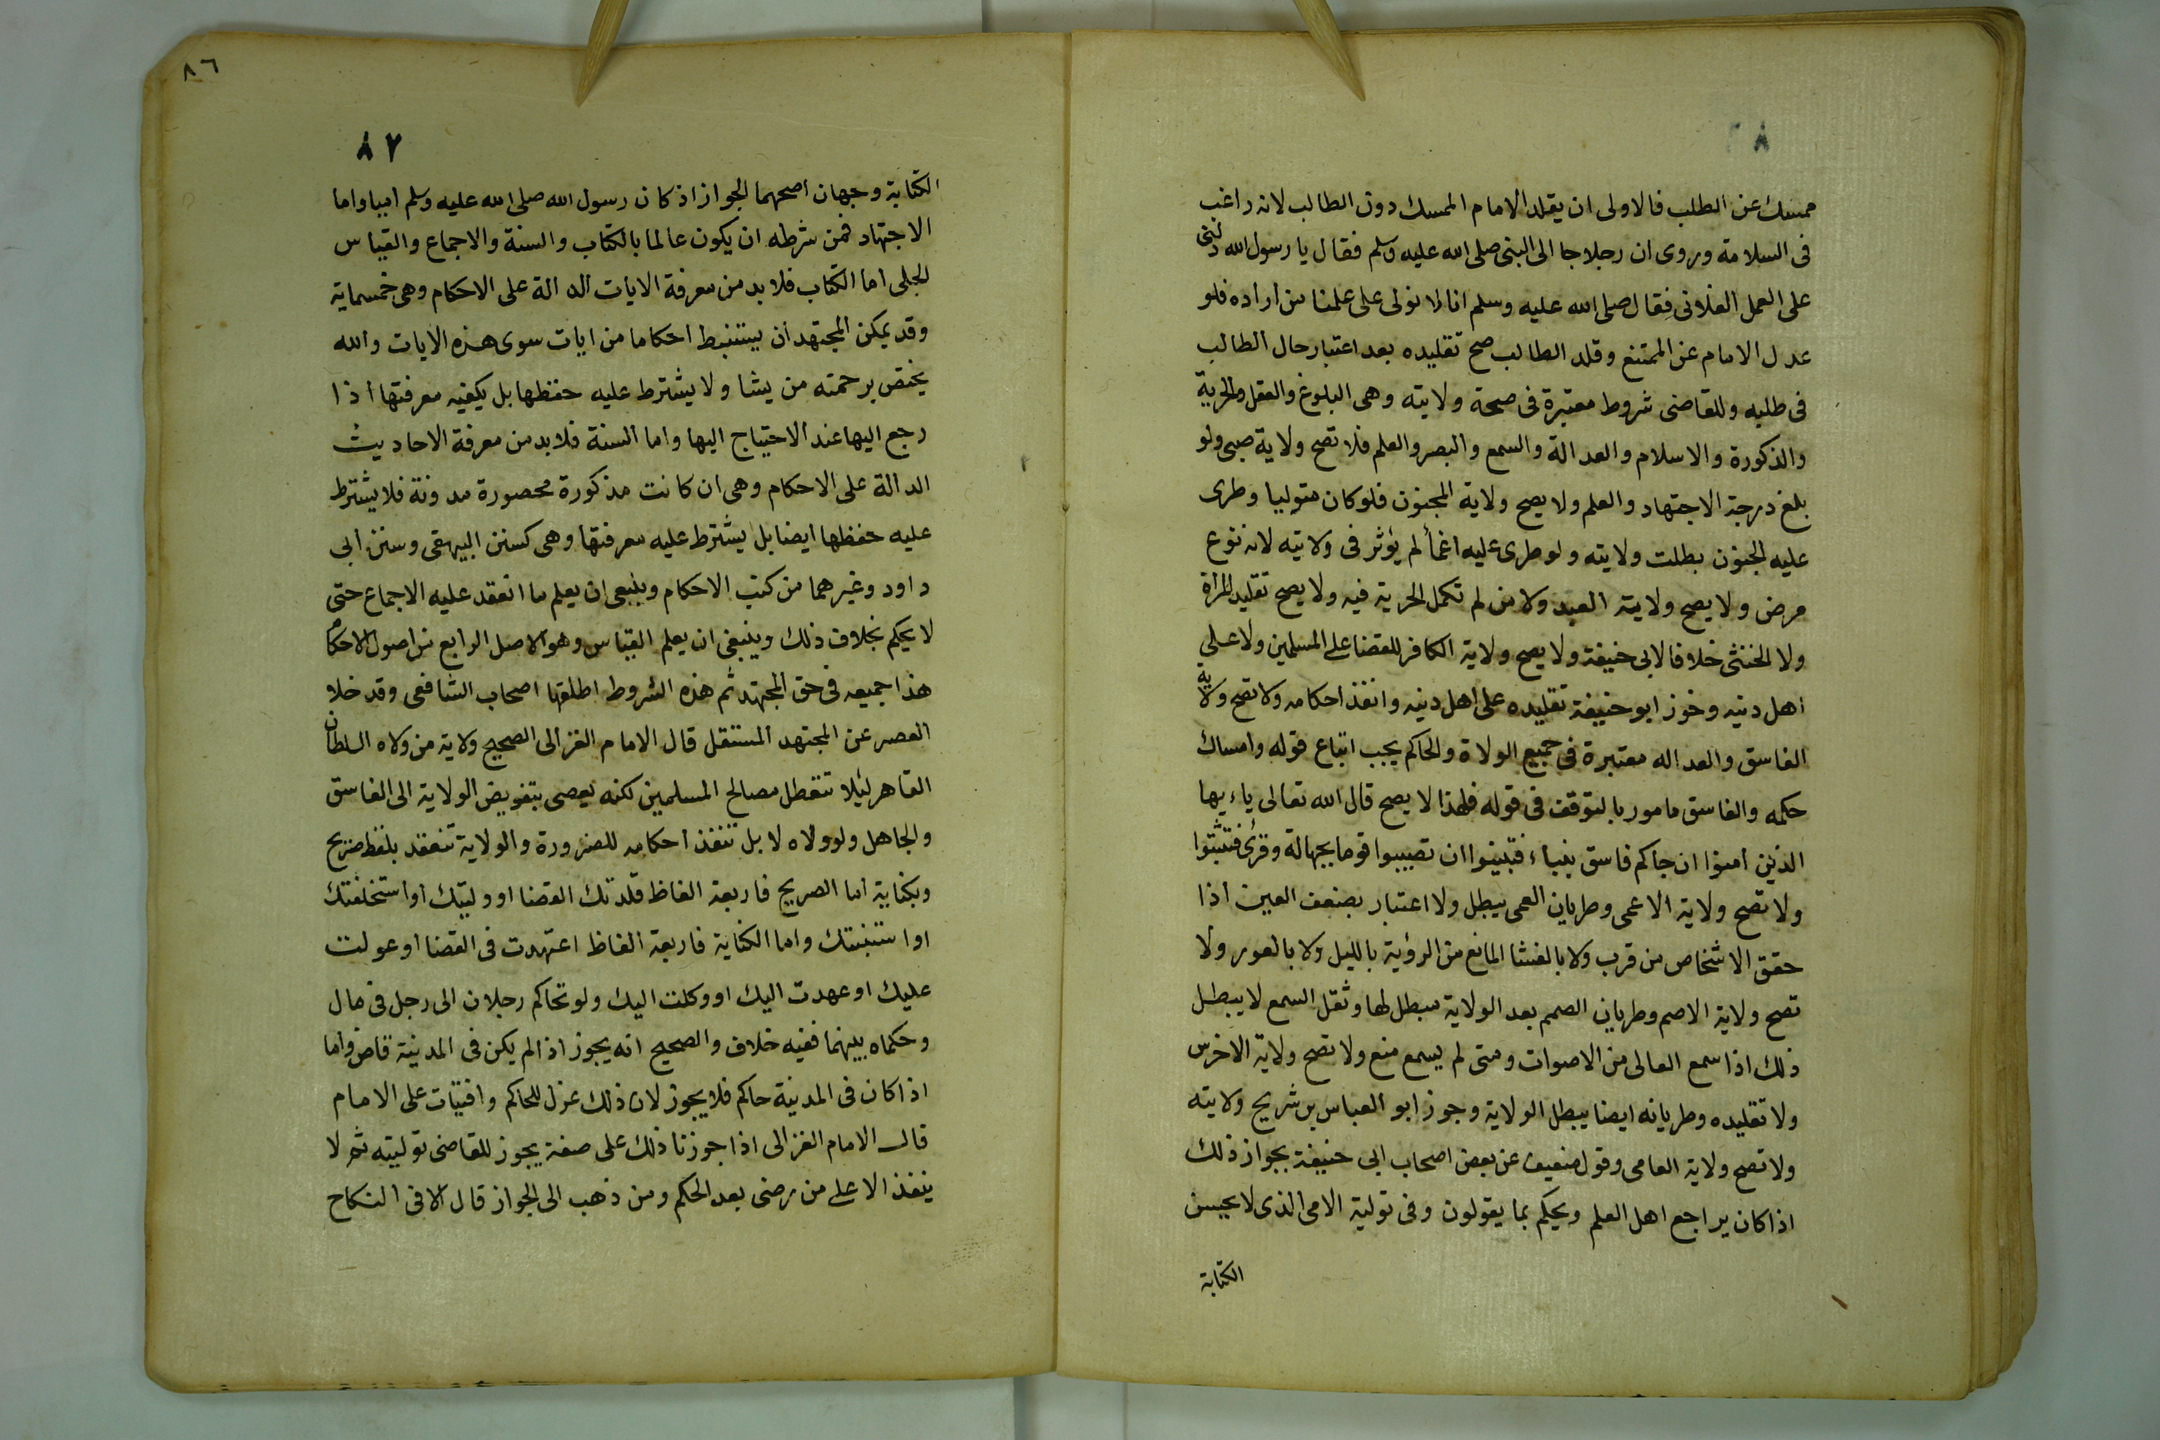 ممسك عن الطلب فالاولى ان يقلد الامام الممسك دون الطالب لانه راغب
فى السلامة وروى ان رجلا جا الى النبى صلى الله عليه وسلم فقال يا رسول الله ولنى
على العمل الفلانى فقال صلى الله عليه وسلم انا لا نولى على علمنا من اراده فلو
عدل الامام عن الممتنع وقلد الطالب صح تقليده بعد اعتبار حال الطالب
فى طلبه وللقاضى شروط معتبرة فى صحة ولايته وهى البلوغ والعقل والحرية
والذكورة والاسلام والعدالة والسمع والبصر والعلم فلا تصح ولاية صبى ولو
بلغ درجة الاجتهاد والعلم ولا يصح ولاية المجنون فلو كان متوليا وطرى
عليه الجنون بطلت ولايته ولو طرى عليه اغمأ لم يؤثر فى ولايته لانه نوع
مرض ولا يصح ولاية العبد ولا من لم تكمل الحرية فيه ولا يصح تقليد المرأة
ولا الخنثى خلافا لابى حنيفة ولا يصح ولاية الكافر للقضا على المسلمين ولا على
اهل دينه وخوز ابو حنيفة تقليده على اهل دينه وانفذ احكامه ولا تصح ولاية
الفاسق والعداله معتبرة فى جميع الولاة والحاكم يجب اتباع قوله وامساك
حكمه والفاسق مامور بالتوقف فى قوله فلهذا لا يصح قال الله تعالى ياءيها
الذين امنوا ان جاكم فاسق بنباء فتبينوا ان تصيبوا قوما بجهالة وقرئ فتثبتوا
ولا تصح ولاية الاعمى وطريان العمى يبطل ولا اعتبار بضعف العين اذا
حقق الاشخاص من قرب ولا بالغشا المانع من الرؤية بالليل ولا بالعور ولا
تصح ولاية الاصم وطريان الصمم بعد الولاية مبطل لها وثقل السمع لا يبطل
ذلك اذا سمع العالى من الاصوات ومتى لم يسمع منع ولا تصح ولاية الاخرس
ولا تقليده وطريانه ايضا يبطل الولاية وجوز ابو العباس بن شريح ولايته
ولا تصح ولاية العامى وقول ضعيف عن بعض اصحاب ابى حنيفة بجواز ذلك
اذا كان يراجع اهل العلم ويحكم بما يقولون وفى تولية الامى الذى لا يحسن
الكتابة
٨٦
٨٧
الكتابة وجهان اصحهما الجواز اذ كان رسول الله صلى الله عليه وسلم اميا واما
الاجتهاد فمن شرطه ان يكون عالما بالكتاب والسنة والاجماع والقياس
الجلى اما الكتاب فلا بد من معرفة الايات الدالة على الاحكام وهى خمسماية
وقد يمكن المجتهد ان يستنبط احكاما من ايات سوى هذه الايات والله
يختص برحمته من يشا ولا يشترط عليه حفظها بل يكفيه معرفتها اذا
رجع اليها عند الاحتياج اليها واما السنة فلا بد من معرفة الاحاديث
الدالة على الاحكام وهى ان كانت مذكورة محصورة مدونة فلا يشترط
عليه حفظها ايضا بل يشترط عليه معرفتها وهى كسنن البيهقى وسنن ابى
داود وغيرهما من كتب الاحكام وينبغى ان يعلم ما انعقد عليه الاجماع حتى
لا يحكم بخلاف ذلك وينبغى ان يعلم القياس وهو الاصل الرابع من اصول الاحكام
هذا جميعه فى حق المجتهد ثم هذه الشروط اطلقها اصحاب الشافعى وقد خلا
العصر عن المجتهد المستقل قال الامام الغزالى الصحيح ولاية من ولاه السلطان
القاهر ليلا تتعطل مصالح المسلمين لكنه يعصى بتفويض الولاية الى الفاسق
والجاهل ولو ولاه لا بل تنفذ احكامه للضرورة والولاية تنعقد بلفظ صريح
وبكناية اما الصريح فاربعة الفاظ قلدتك القضا او وليتك او استخلفتك
او استنبتك واما الكناية فاربعة الفاظ اعتهدت فى القضا او عولت
عليك او عهدت اليك او وكلت اليك ولو تحاكم رجلان الى رجل فى مال
وحكماه بينهما ففيه خلاف والصحيح انه يجوز اذا لم يكن فى المدينة قاض واما
اذا كان فى المدينة حاكم فلا يجوز لان ذلك عزل للحاكم وافتيات على الامام
قال الامام الغزالى اذا جوزنا ذلك على صفة يجوز للقاضى توليته ثم لا
ينفذ الا على من رضى بعد الحكم ومن ذهب الى الجواز قال الا فى النكاح